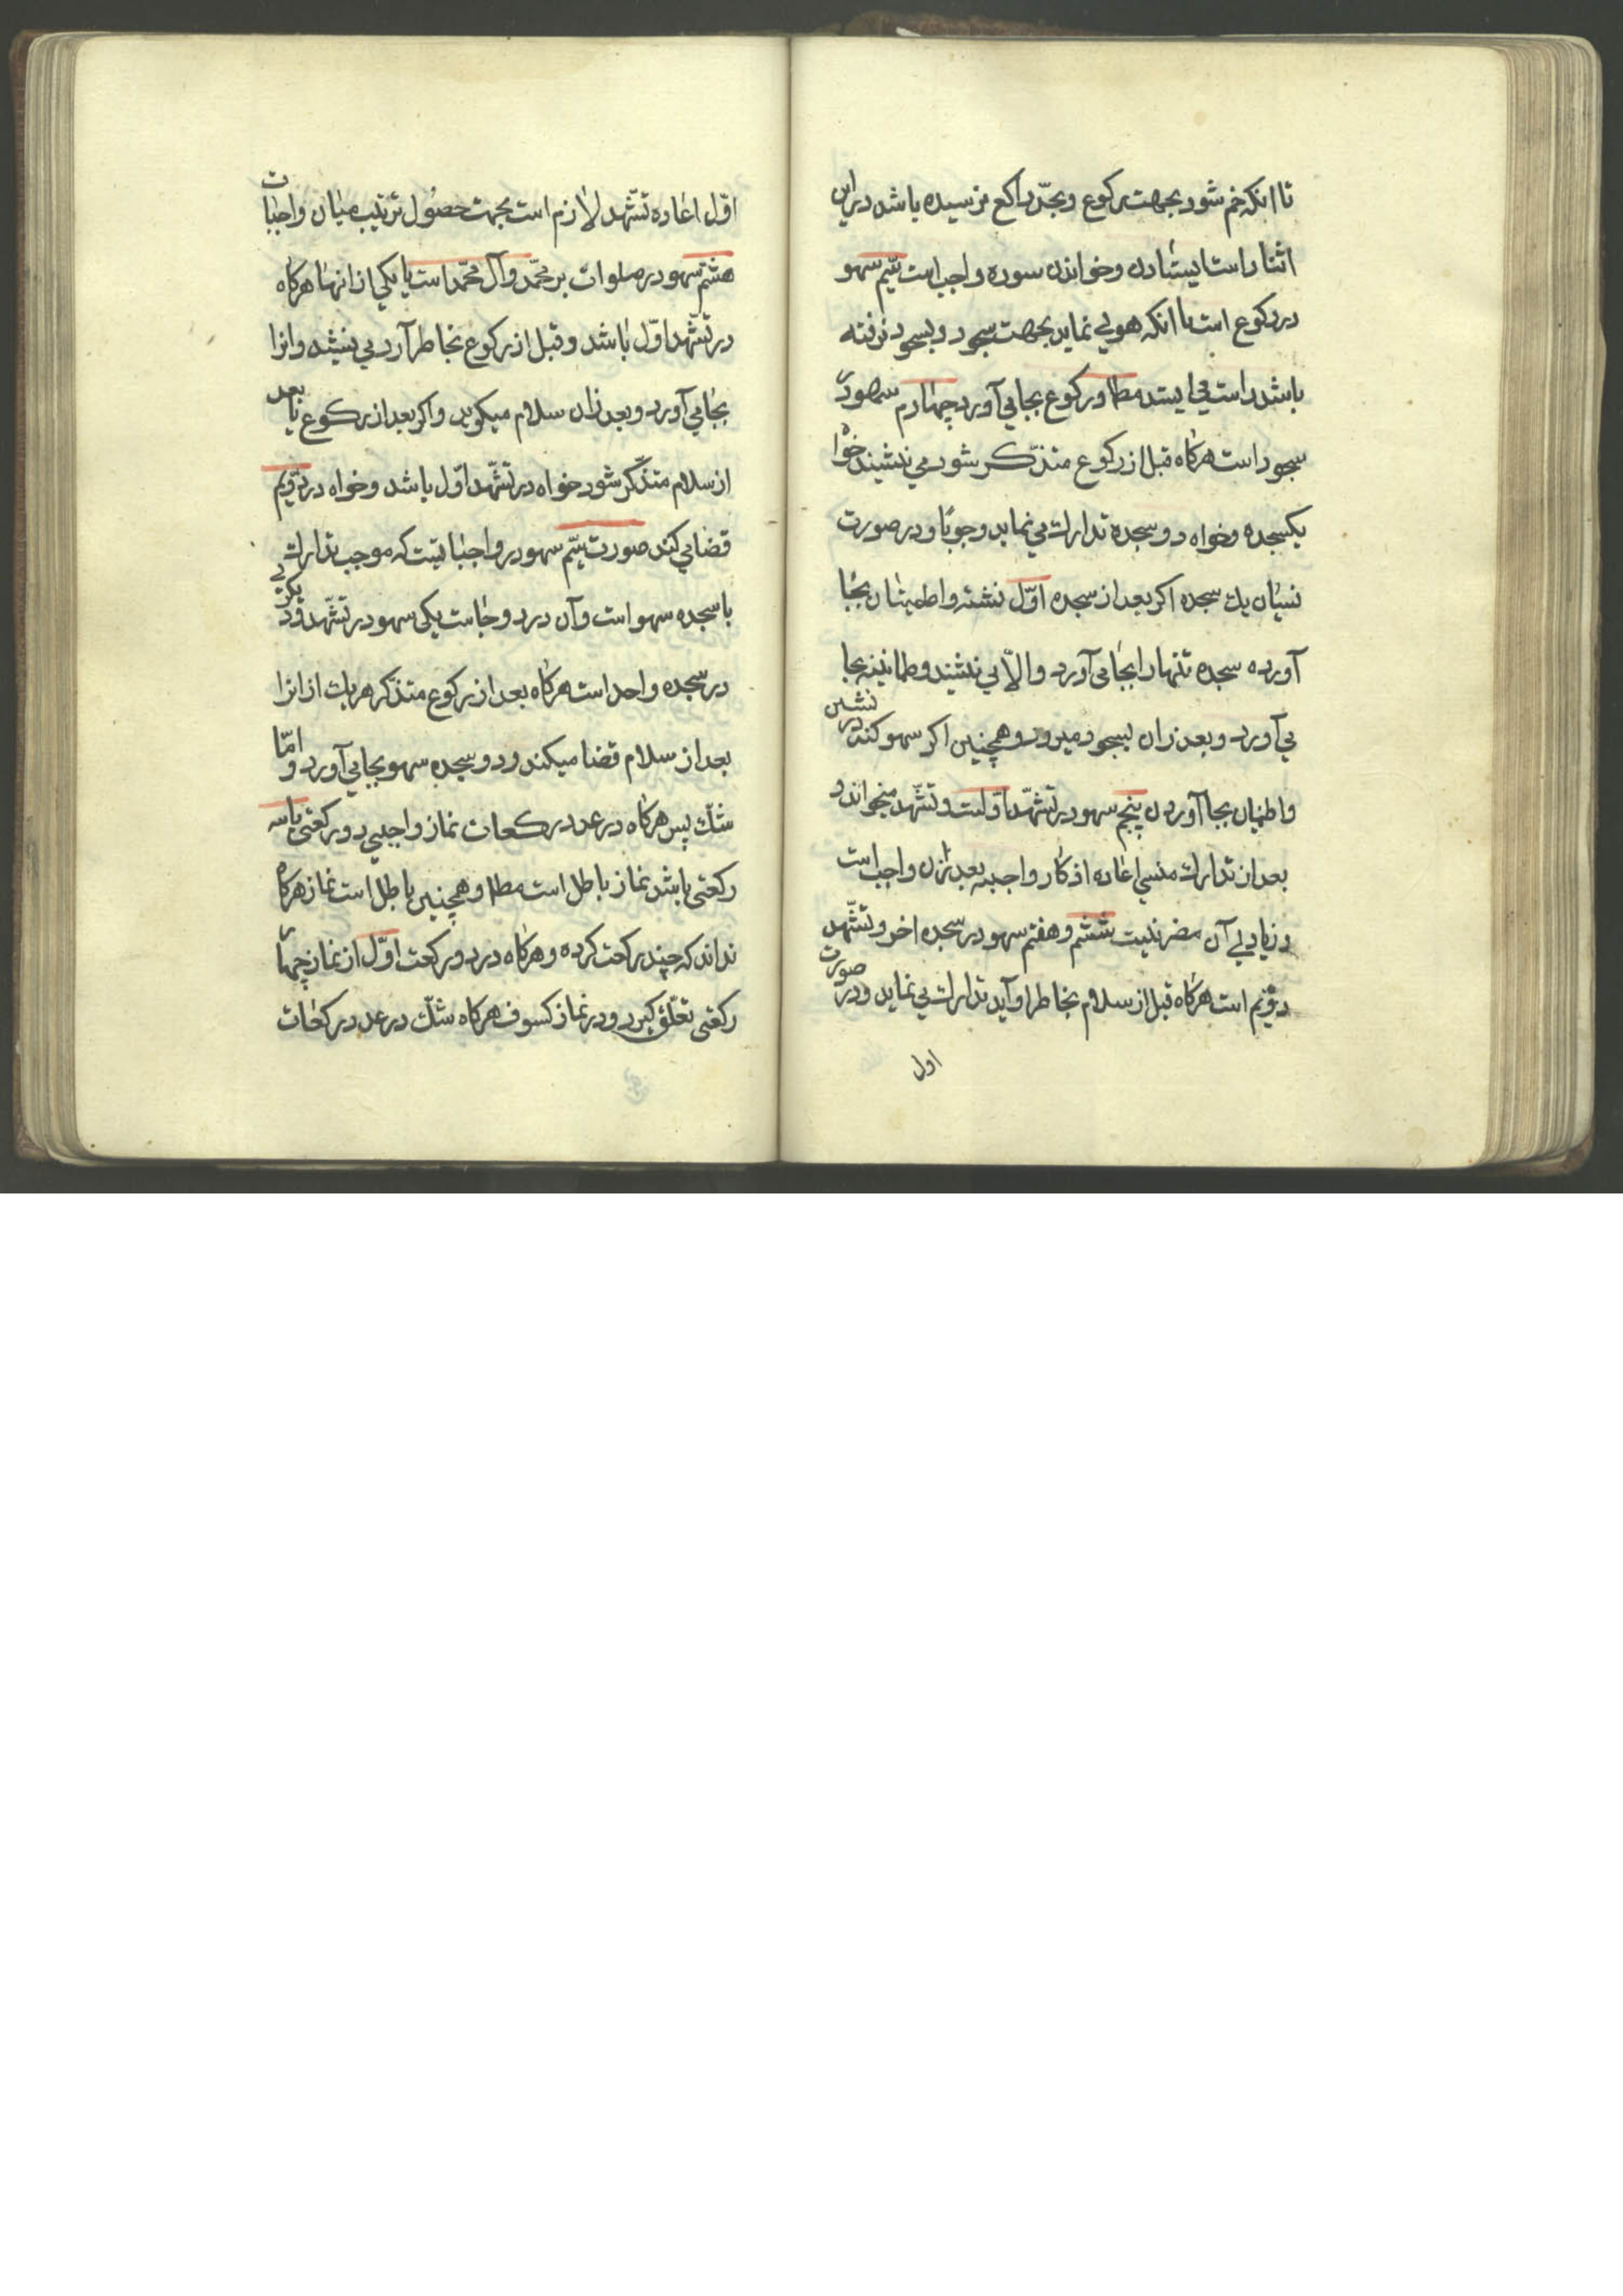 تا انکه خم شود بجهت رکوع و بحدّ راکع نرسیده باشد در این
اثنا راست ایستادن و خواندن سوره واجب است سیّم سهو
در رکوع است تا انکه هوی نماید بجهت سجود و بسجود نرفته
باشد راست می ایستد مطا و رکوع بجا می آورد چهارم سهو در
سجود است هرکاه قبل از رکوع متذکّر شود می نشیند خواه
یکسجده و خواه دو سجده تدارك می نماید وجوبًا و در صورت
نسیان یك سجده اکر بعد از سجده اوّل نشسته و اطمینان بجا
آورده سجده تنها را بجا می آورد و الّا می نشیند و طمانینه بجا
می آورد و بعد زان بسجود میرود و همچنین اکر سهو کند در نشستن
و اطمینان بجا آوردن پنجم سهو در تشهّد اوّلست و تشهّد میخواند و
بعد از تدارك منسی اعاده اذکار واجبه بعد زان واجب است
و زیادی آن مضر نیست ششم و هفتم سهو در سجده اخر و تشهّد
دویّم است هرکاه قبل از سلام بخاطر او آید تدارك می نماید و در صورت
اول
اوّل اعاده تشهّد لازم است بجهت حصول ترتیب میان واجبات
هشتم سهو در صلوات بر محمّد و آل محمّد است یا یکی از انها هرکاه
در تشهّد اوّل باشد و قبل از رکوع بخاطر آرد می نشیند و انرا
بجا می آورد و بعد زان سلام میکوید و اکر بعد از رکوع یا بعد
از سلام متذکّر شود خواه در تشهّد اوّل باشد و خواه در دویّم
قضا می کند صورت سیّم سهو در واجباتیست که موجب تدارك
با سجده سهو است و آن در دو جا است یکی سهو در تشهّد و دیکری
در سجده واحد است هرکاه بعد از رکوع متذکر هر یك از انرا
بعد از سلام قضا میکند و دو سجده سهو بجا می آورد و امّا
شكّ پس هرکاه در عدد رکعات نماز واجبی دو رکعتی یا سه
رکعتی باشد نماز باطل است مطا و همچنین باطل است نماز هرکاه
نداند که چند رکعت کرده و هرکاه در دو رکعت اوّل از نماز چهار
رکعتی تعلّق کیرد و در نماز کسوف هرکاه شكّ در عدد رکعات